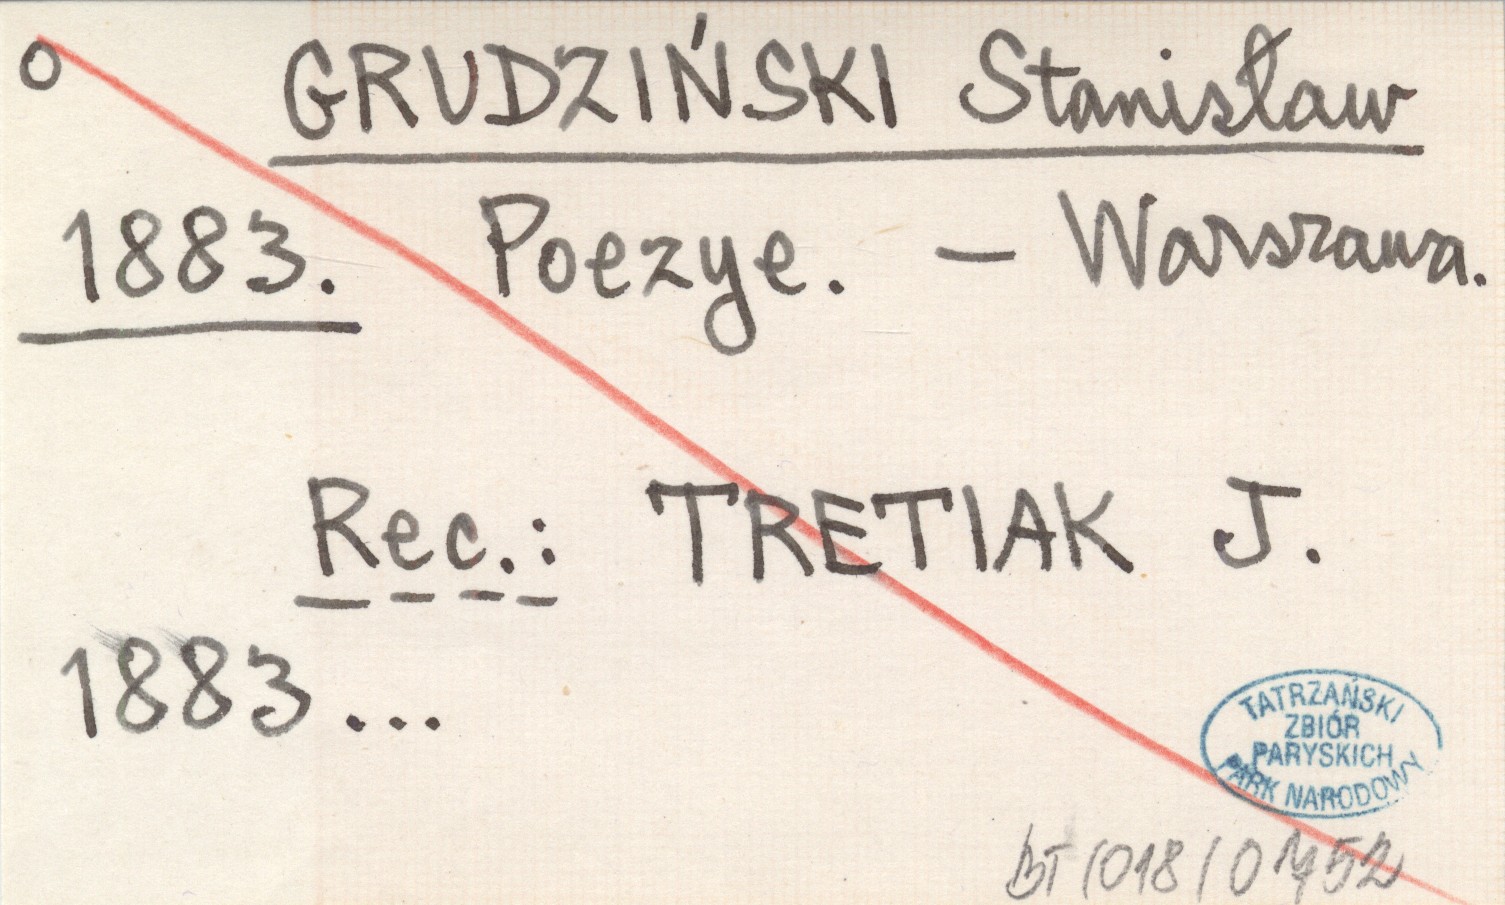 o GRUDZIŃSKI Stanisław
1883. Poezye. – Warszawa.
Rec.: TRETIAK J.
1883...
TATRZAŃSKI
ZBIÓR
PARYSKICH
PARK NARODOWY
BT/018/0